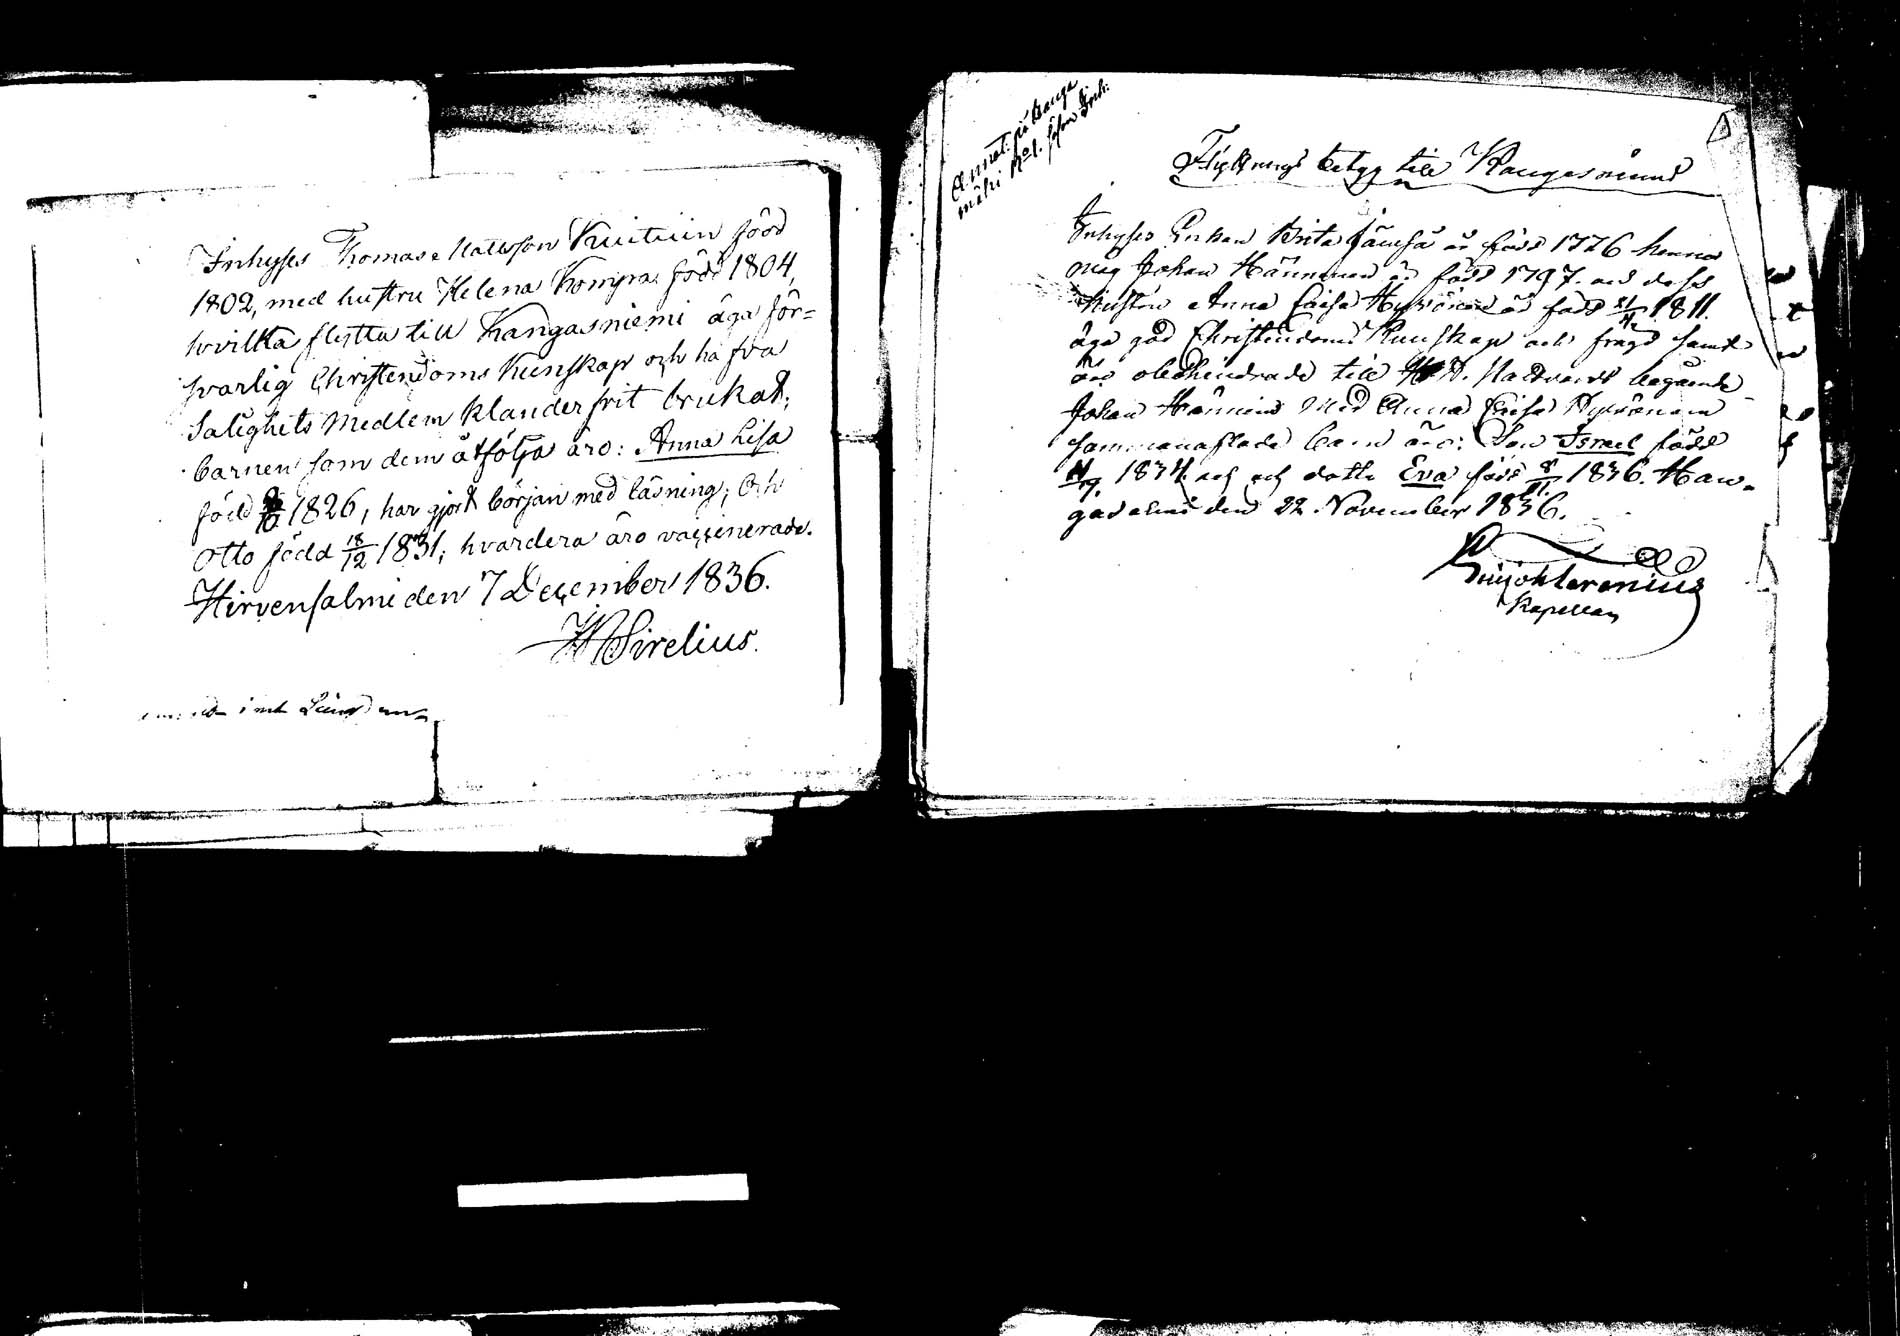 Inhyses Thomas Matsson Kuituin född
1802, med hustru Helena Kompas född 1804,
hvilka flytta till Kangasniemi äga för=
svarlig Christendoms Kunskap och hafva
Salighets Medlem klanderfrit brukat;
barnen som dem åtfölja äro: Anna Lisa
född 1826, har gjort början med läsning; Och
Otto född 18/12 1831; hvardera äro vaccinerade.
Hirvensalmi den 7 December 1836.
Sirelius.
Anmält på Kanga
mäki No 1. såsom Inh:
Flyttnings betyg till Kangasniemi
Inhyses Enkan Brita Jämsä är född 1776 hennes
måg Johan Hänninen är född 1797. och dess
hustru Anna Caisa Hyvönen är född 1811.
äga god Christendoms Kunskap och frägd samt
äro obehindrade till H. H. Nattvards begående
Johan Hänninens Med Anna Caisa Hyvönen
sammanaflade barn äro: Son Israel född
1834. och dottr Eva född 1836. Hau-
den 22 November 1836.
Kapellan